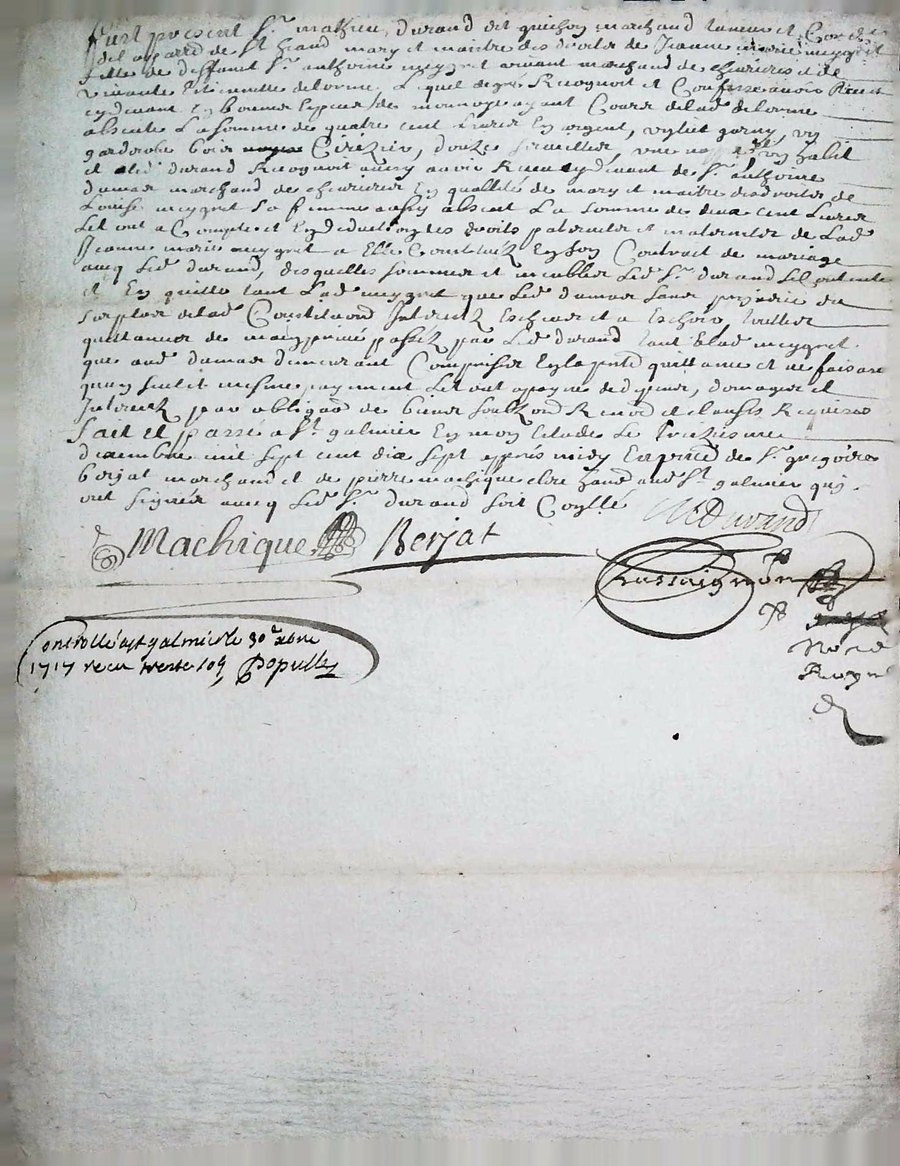 Fust present Sr. mathieu durand dit guichon marchand taneur et
del a parre de St heand mary et maitre des droits de Jeanne marie meygret
fille de deffunt Sr. anthoine meygret vivant marchand de cheurieres et de
vivante Estiennette delorme, Lequel de gré Recognoit et Confesse avoir Receu
cydevant En bonnes Especes de monnoye ayant Cours delad. delorme
absente La somme de quatre cent Livres En argent, un garny, un
garderobe bois Cirezier, douze serviettes, une nappe habit
et led. durand Recognoit aussy avoir Receu cydevant de Sr. anthoine
damas marchand de cheurieres En quallité de mary et maitre des droits de
Louise meygret Sa femme aussy absent La somme de deux cent Livres
Le tout a Compte et En deduction des droits paternels et maternels de Lad.
Jeanne marie meygret a Elle Constitués En son Contrait de mariage
avecq led. durand, desquelles sommes et meubles led. Sr. durand Se Contente
et En quitte tant Lad. meygret que led. damas sans prejudice du
surplus delad. Constitution Interests Escheus et a Eschoir touttes
quittances de main privée passés par led. durand tant a Lad. meygret
que aud. damas demeurant Comprises En la pnte quittance et ne faisans
quun seul et mesme payement Le tout a peyne de depens, domages et
Interests par obligaon de biens soubmons Renons et clauses Requises
fait et passé a St. galmier En mon Estude Le trezieme
decembre mil sept cent dix sept apres midy En pnce de Sr. gregoire
berjat marchand et de pierre machique clerc aud. St. galmier quy
ont signées avecq led. Sr. durand soit Conllé
MDurand
Machique Berjat
Chassaignon
Nore
Royal
Controllé a st galmier le 30e xbre
1717 receu trente sols Populle